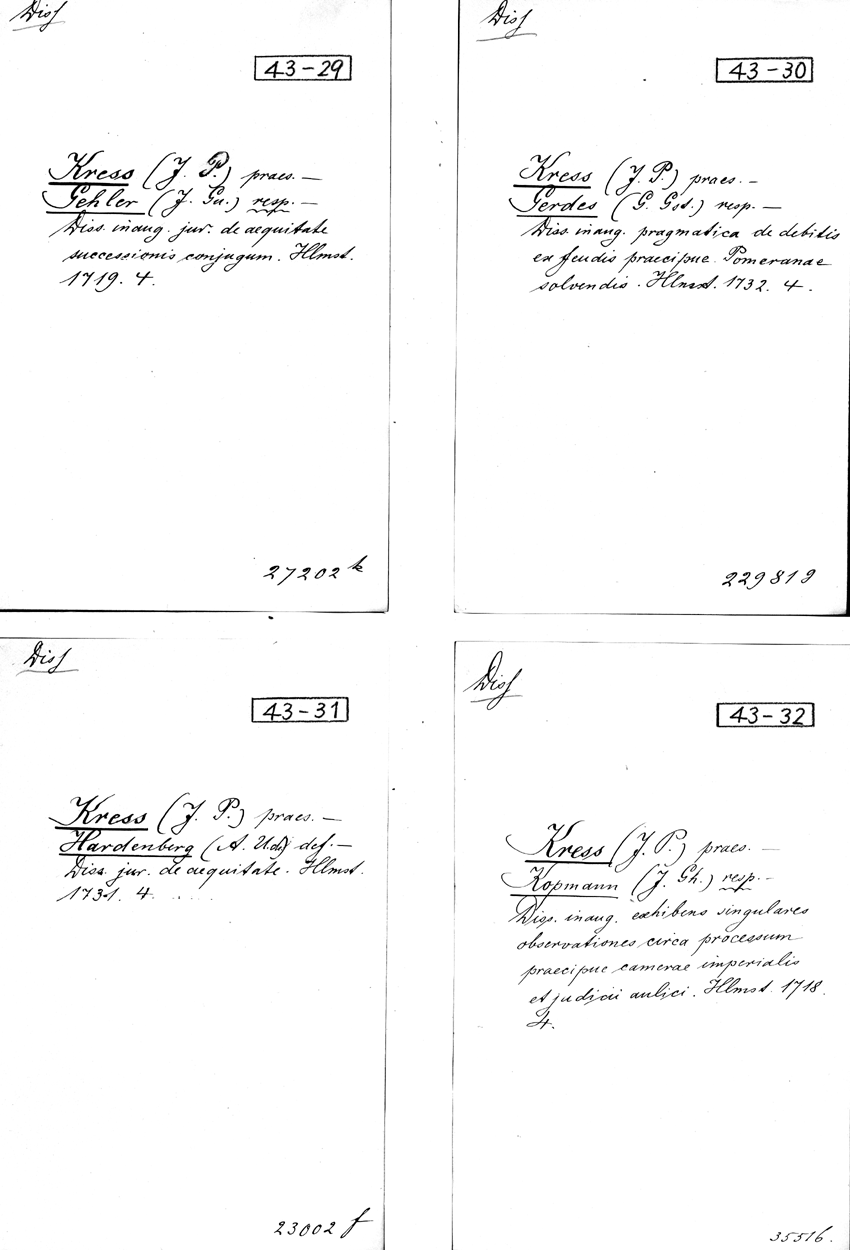 Diss
43-29
Kress (J. P.) praes. —
Gehler (J. Gu.) resp. —
Diss. inaug. jur. de aequitate
successionis conjugum. Hlmst.
1719. 4.
27202 k
Diss
43-30
Kress (J. P.) praes. —
Gerdes (G. Gst.) resp. —
Diss. inaug. pragmatica de debitis
ex feudis praecipue Pomeranae
solvendis. Hlmst. 1732. 4.
229819
Diss
43-31
Kress (J. P.) praes. —
Hardenberg (A. Udr.) def. —
Diss. jur. de aequitate. Hlmst.
1731. 4.
23002 f
Diss
43-32
Kress (J. P.) praes. —
Kopmann (J. Gh.) resp. —
Diss. inaug. exhibens singulares
observationes circa processum
praecipue camerae imperialis
et judicii aulici. Hlmst. 1718.
4.
35516.